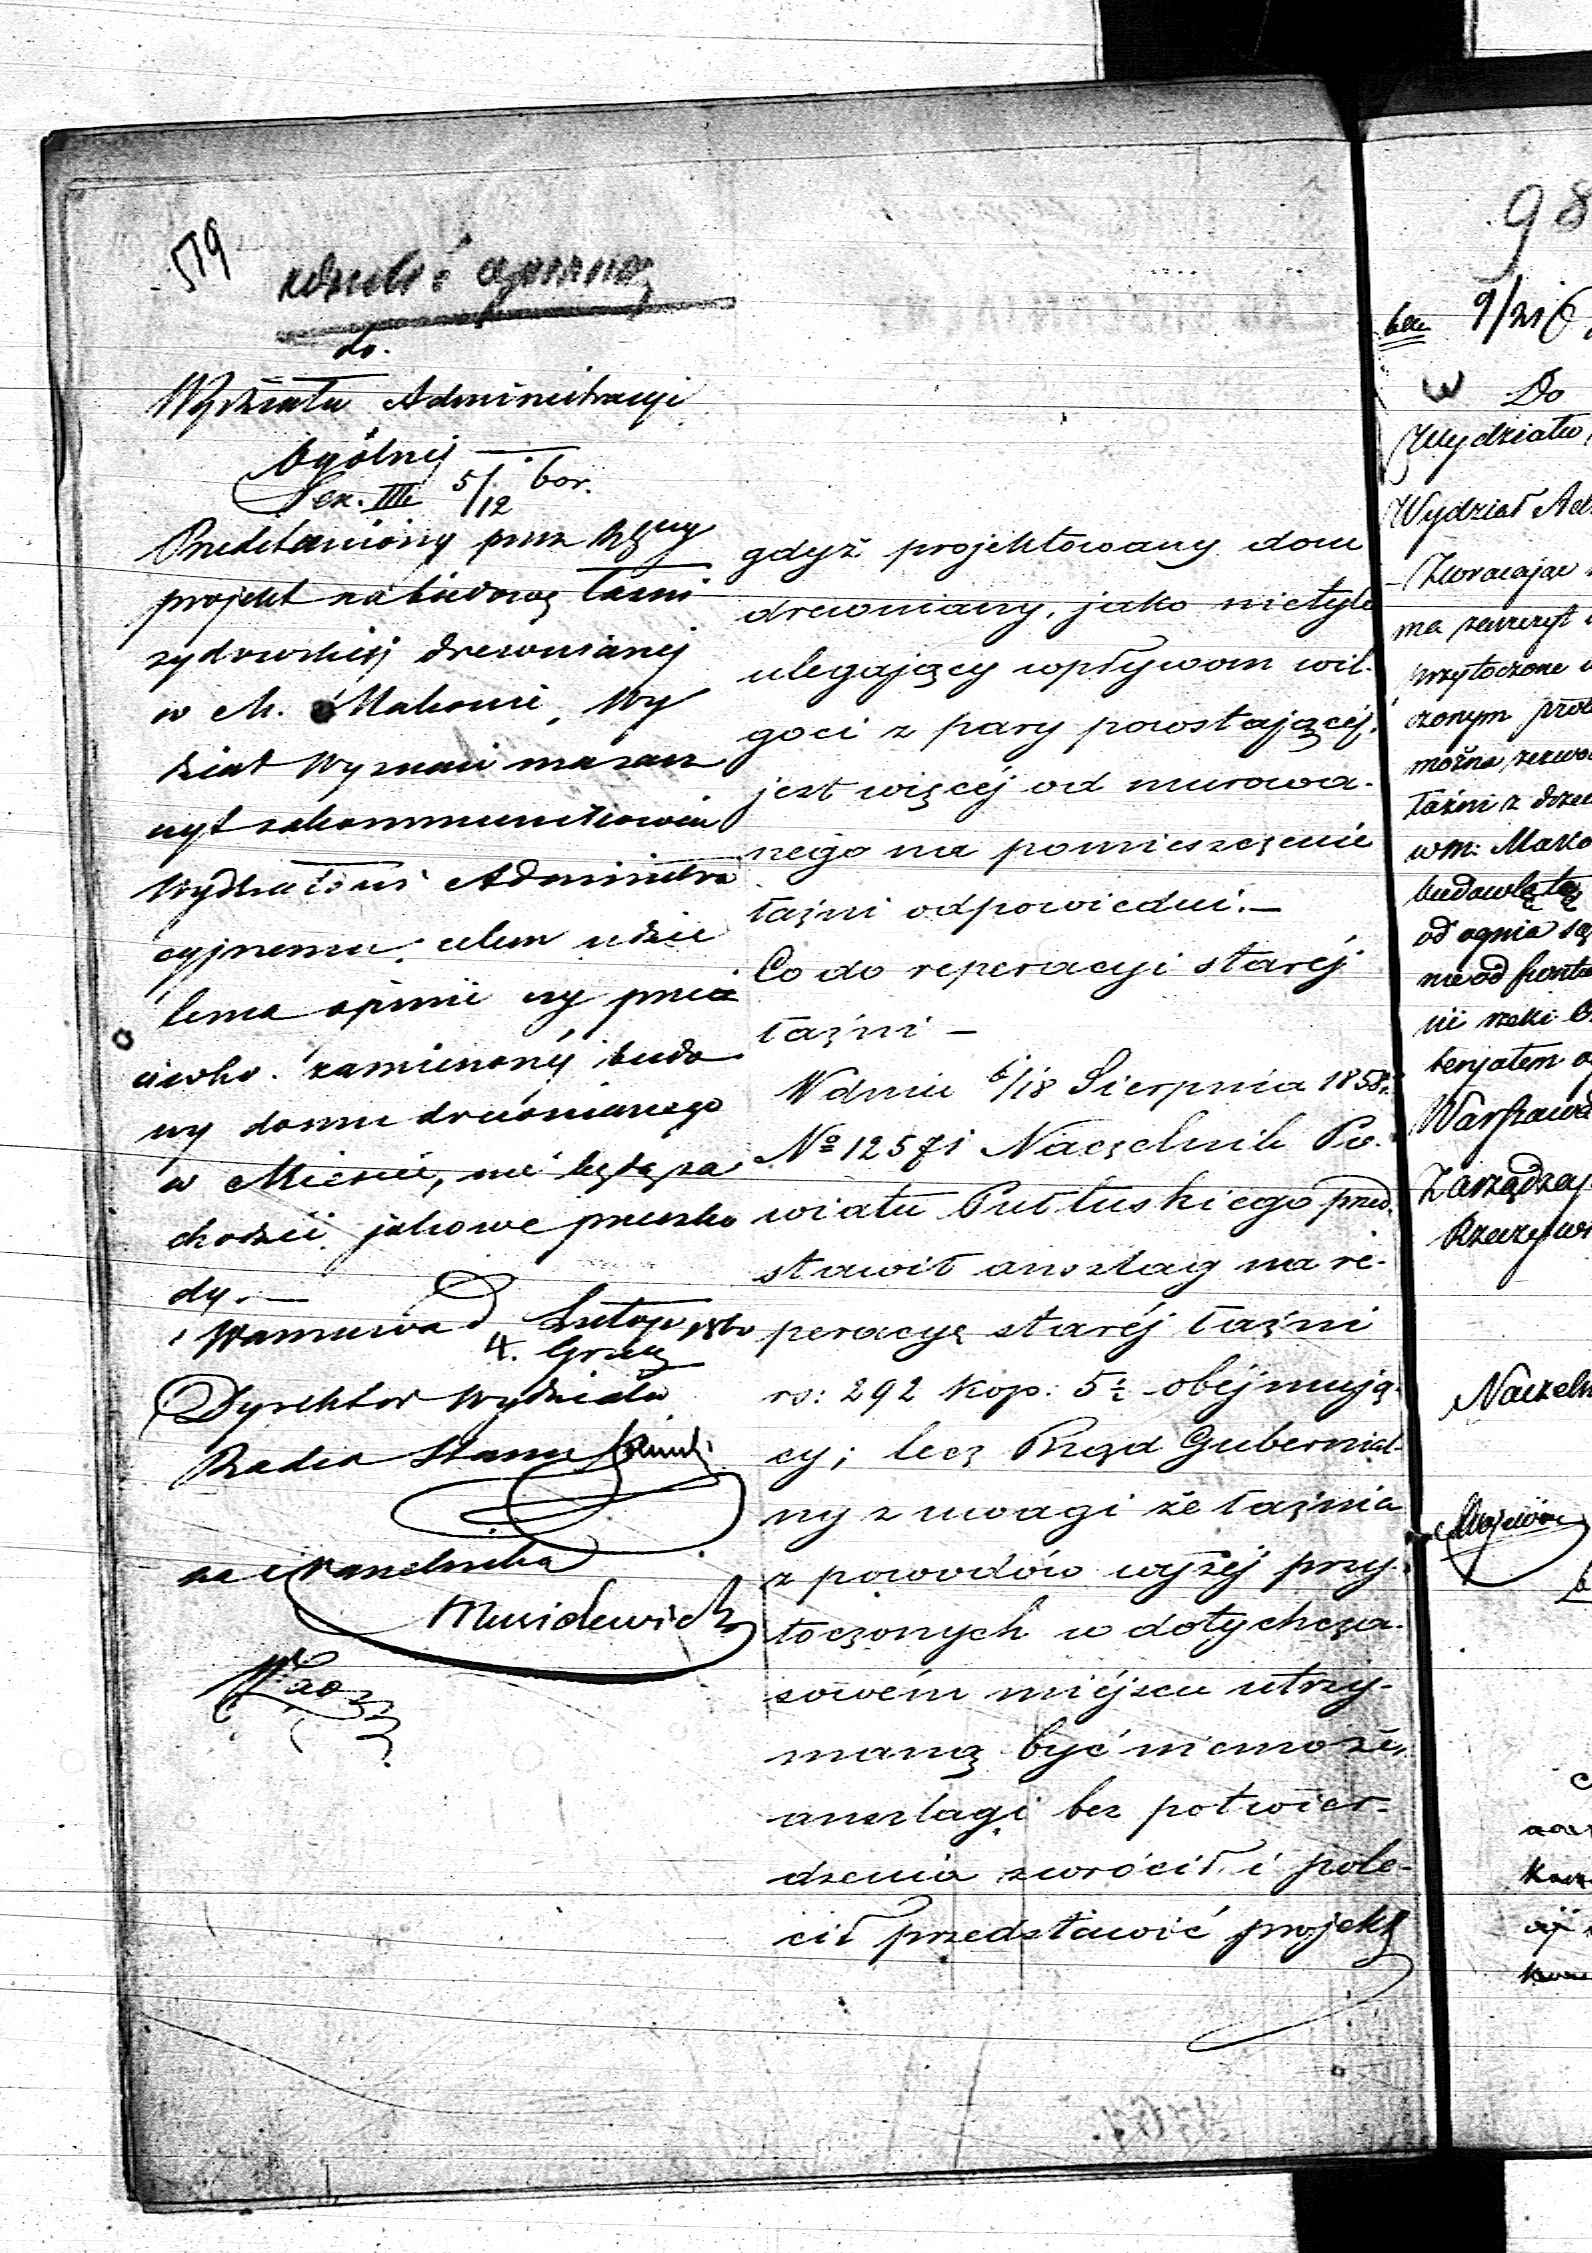 519
do.
Wydziału Administracyi
Ogólnej
Sek. III 5/12 bor.
Przedstawiony przez
projekt na budowę łaźni
żydowskiéj drewnianéj
w M. Makowie, Wy
dział Wyznań ma zasz
czyt zakommunikować
Wydziałowi Administra
cyjnemu, celem udzie
lenia opinii czy prze
ciwko zamierzonéj budo
wy domu drewnianego
w Mieście, nie będą za
chodzić jakowe przeszko
dy.—
Warszawa d Listop. 1860
4. Grud
Dyrektor Wydziału
Radca Stanu
za Naczelnika
gdyż projektowany dom
drewniany, jako nietyle
ulegający wpływom wil-
goci z pary powstającéj,
jest więcéj od murowa-
nego na pomieszczenie
łaźni odpowiedni.—
Co do reperacyi staréj
łaźni —
W dniu 6/18 Sierpnia 1858 r.
№ 12571 Naczelnik Po-
wiatu Pułtuskiego przed-
stawił anszlag na re-
peracyę staréj łaźni
rs: 292 kop: 5½ obejmują-
cy; lecz Rząd Gubernial-
ny z uwagi że łaźnia
z powodów wyżéj przy-
toczonych w dotychcza-
sowém miéjscu utrzy-
maną być niemoże,
anszlagi bez potwier-
dzenia zwrócił i pole-
cił przedstawić projekt
98
9/21
Do
Wydziału
Wydział Ad
Zwracając
ma zaszczyt
przytoczone
czonym
można
łaźni z drze
w m. Mako
budowlę tę
od ognia
nie od frontu
Warszawa
Zarządzaj
Rzeczyw
Naczeln